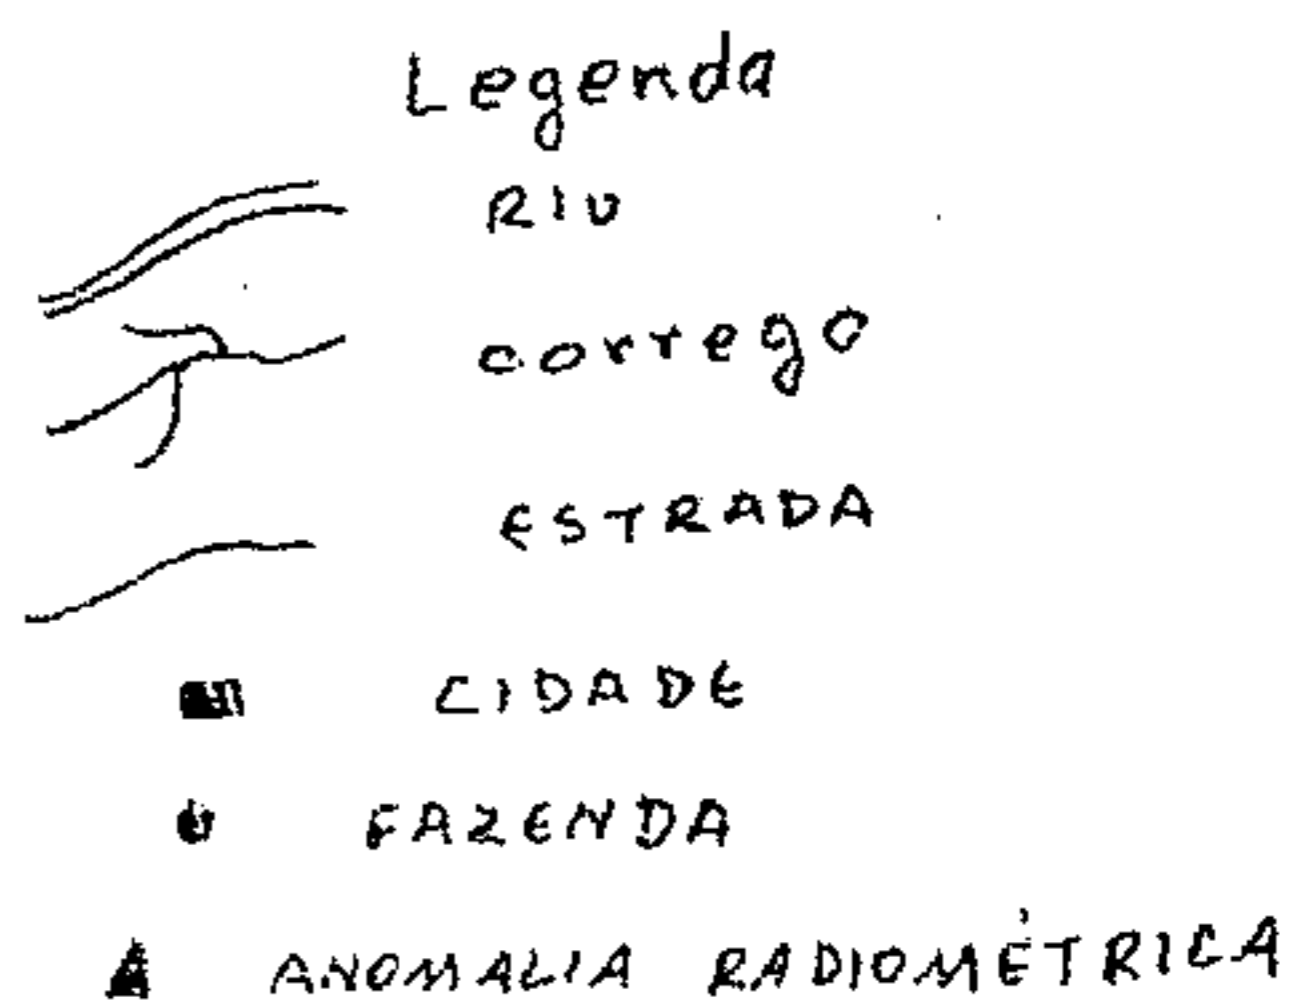 Legenda
RIO
corrego
ESTRADA
CIDADE
FAZENDA
ANOMALIA RADIOMÉTRICA